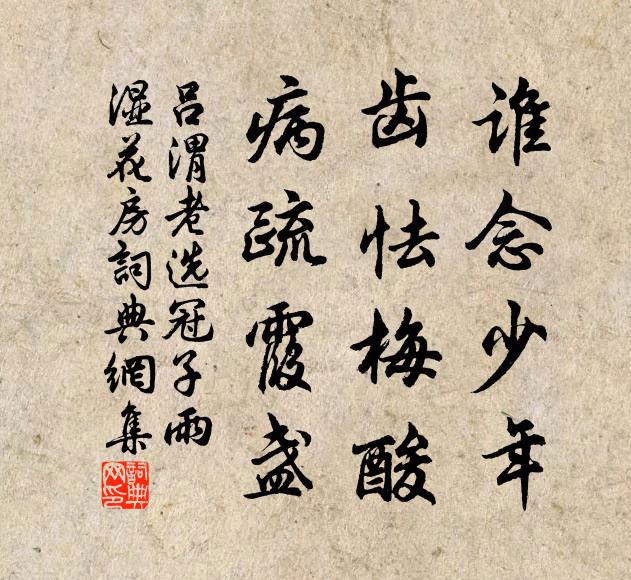 谁念少年
齿怯梅酸
病疏霞盏
吕渭老选冠子雨
湿花房詞典網集
詞典网印